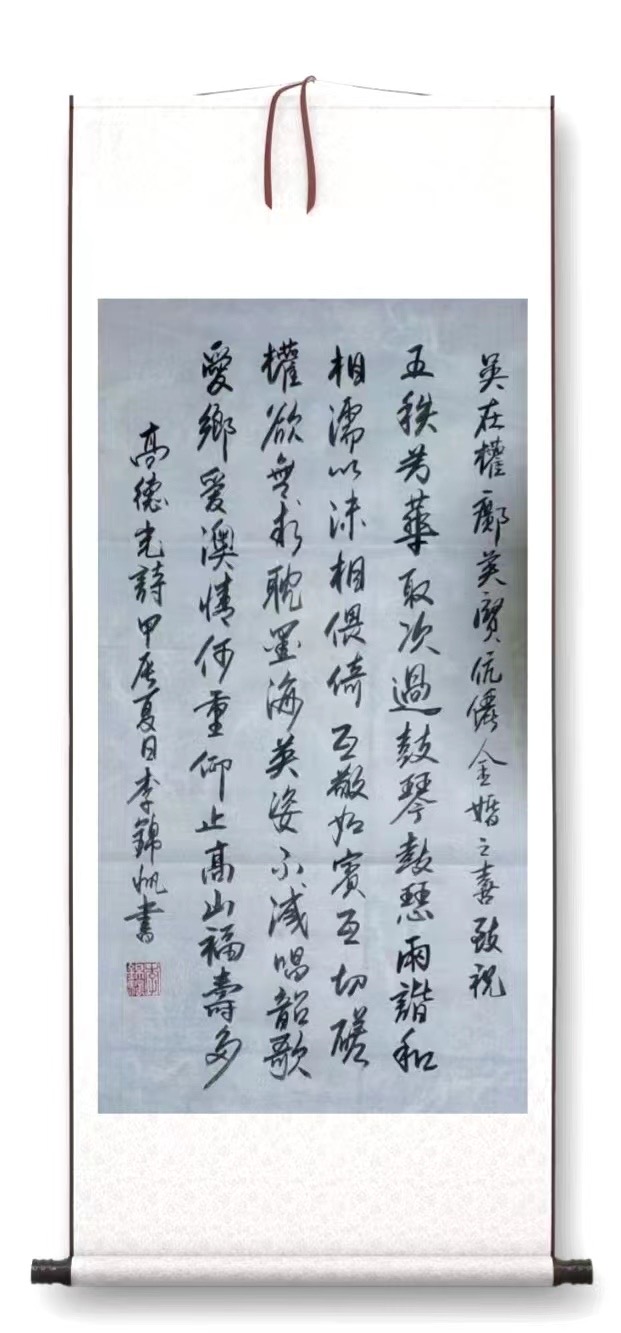 吳在權鄺英寶伉儷金婚之喜致祝
五秩芳華取次過鼓琴鼓瑟兩諧和
相濡以沫相偎倚互敬如賓互切磋
權欲無求耽墨海英姿不減唱韶歌
愛鄉愛澳情何重仰止高山福壽多
高德光詩甲辰夏日李錦帆書